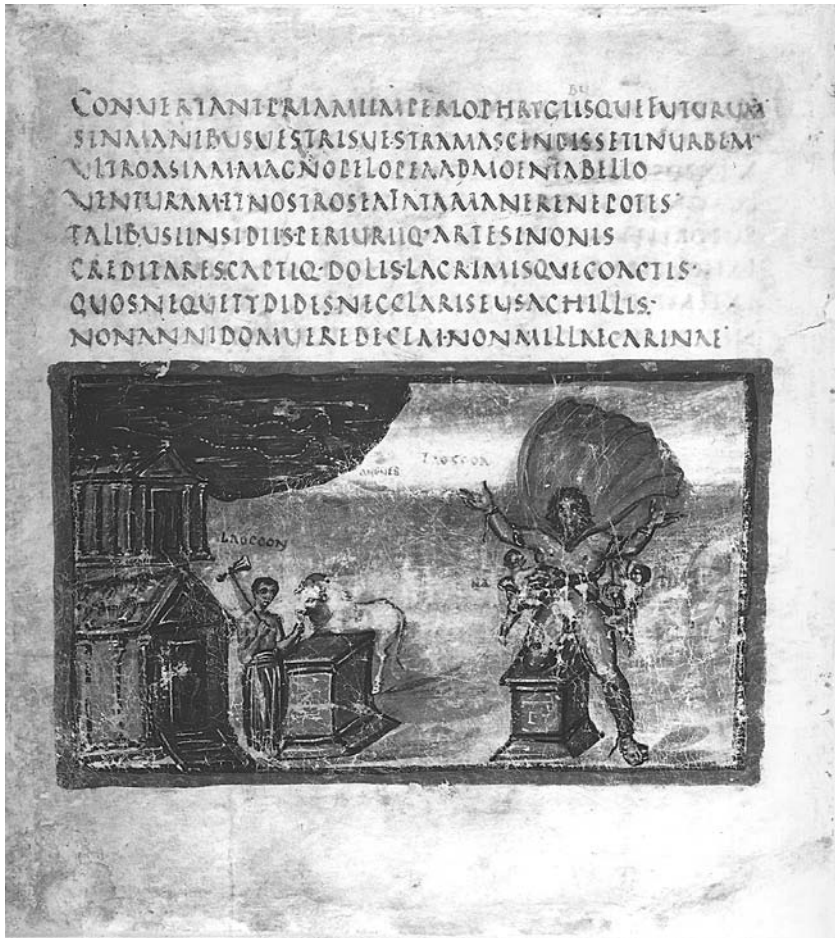 BU
CONUERTANTPRIAMIIMPERIOPHRYGIISQUEFUTURUM
SINMANIBUSUESTRISUESTRAMASCENDISSETINURBEM
ULTROASIAM·MAGNOPELOPEAADMOENIABELLO
UENTURAM·ETNOSTROSEAFATAMANERENEPOTES
TALIBUSIINSIDIIS·PERIURIIQ·ARTESINONIS
CREDITARESCAPTIQ·DOLIS·LACRIMISQUECOACTIS·
QUOS·NEQUETYDIDESNECCLARISEUSACHILLIS·
NONANNIDOMUEREDECEM·NONMILLAECARINAE
ANGUES
LAOCOON
LAOCOON
NA